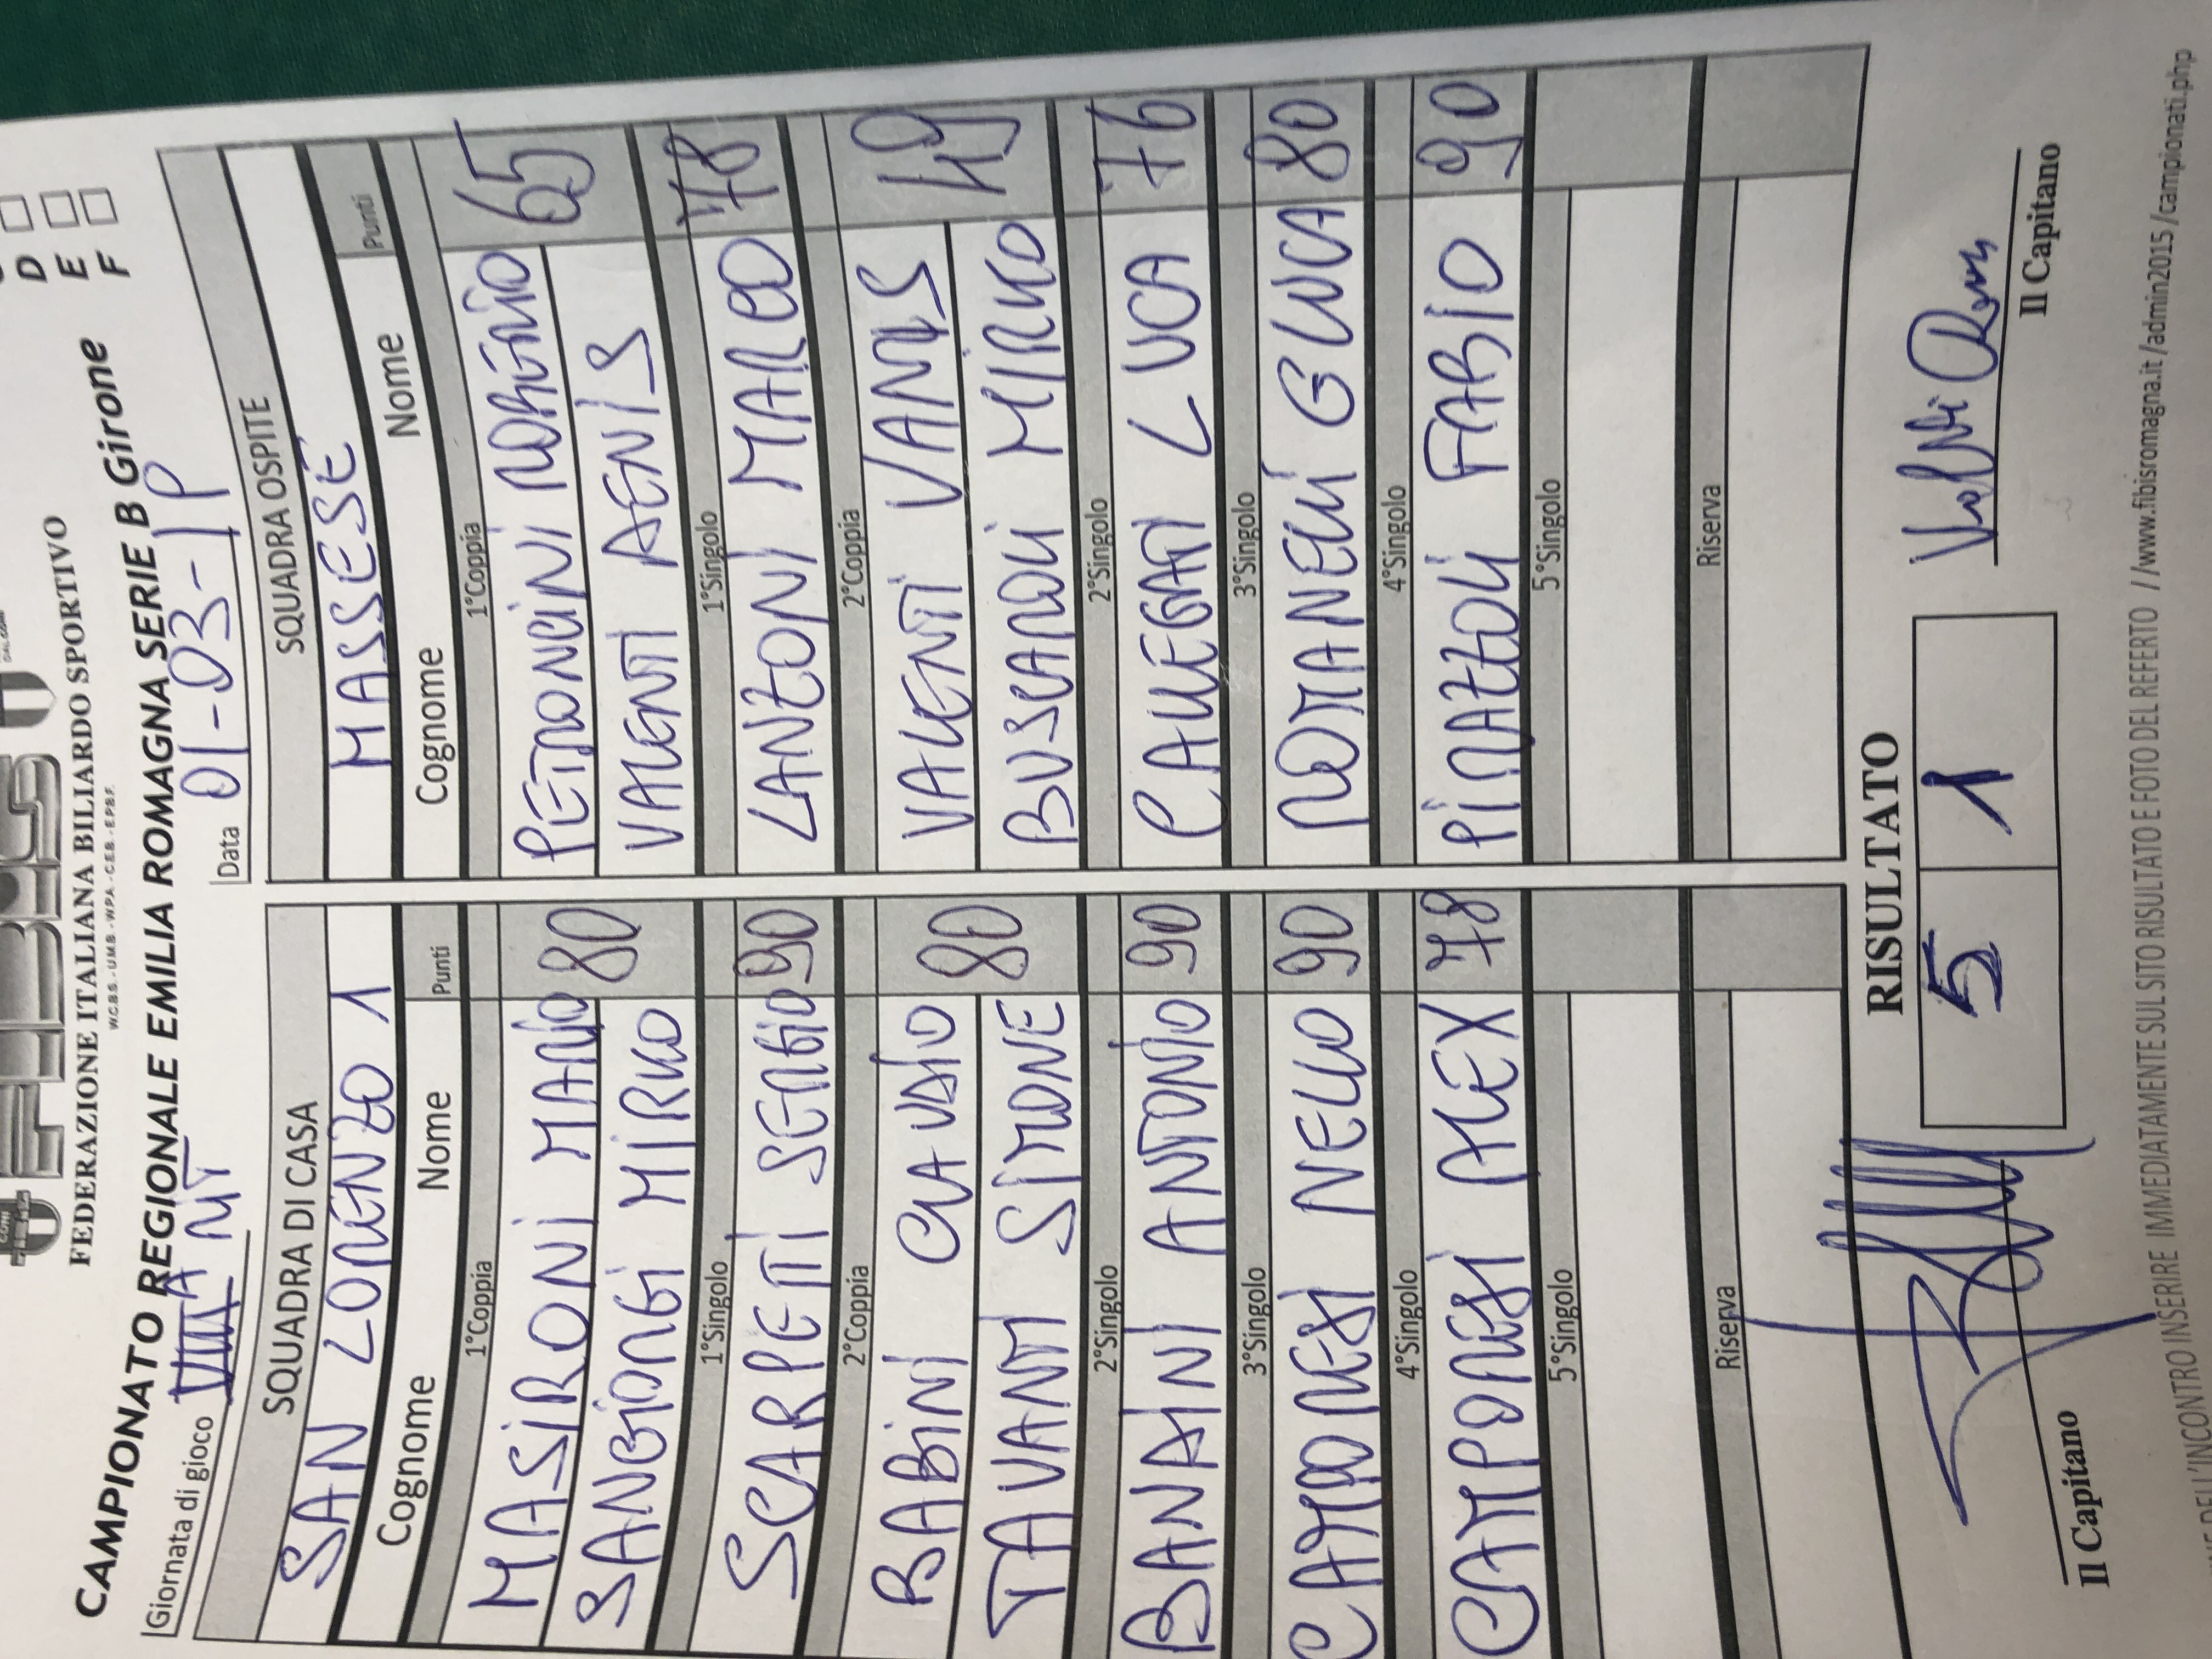 FEDERAZIONE ITALIANA BILIARDO SPORTIVO
W.C.B.S. - U.M.B. - W.P.A. - C.E.B. - E.P.B.F.
D
E
F
CAMPIONATO REGIONALE EMILIA ROMAGNA SERIE B Girone
Giornata di gioco
Data 01-03-19
SQUADRA DI CASA
SAN LORENZO 1
Cognome Nome Punti
1°Coppia
MASIRONI MARIO 80
SANGIORGI MIRKO
1°Singolo
SCARPETTI SERGIO 90
2°Coppia
BABINI CLAUDIO 80
TAVANTI SIMONE
2°Singolo
BANDINI ANTONIO 90
3°Singolo
CAMPORESI NELLO 90
4°Singolo
CAMPORESI ALEX 78
5°Singolo
Riserva
SQUADRA OSPITE
MASSESE
Cognome Nome Punti
1°Coppia
PETRONCINI ROMERIO 65
VALENTI AENIS
1°Singolo
LANZONI MARCO 78
2°Coppia
VALENTI VANIS 49
BUSCAROLI MIRKO
2°Singolo
CALLEGATI LUCA 76
3°Singolo
MONTANELLI GLUCA 80
4°Singolo
PIRAZZOLI FABIO 90
5°Singolo
Riserva
RISULTATO
5 1
Il Capitano
Il Capitano
DELL'INCONTRO INSERIRE IMMEDIATAMENTE SUL SITO RISULTATO E FOTO DEL REFERTO //www.fibisromagna.it/admin2015/campionati.php